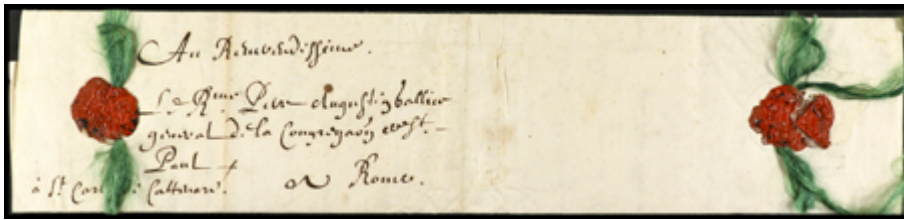 Au Reuerendissime.
Le Rme Pere Augustin Gallice
general de la Congregaõn de St.
Paul
à St Carlo de Cattinari. A Rome.